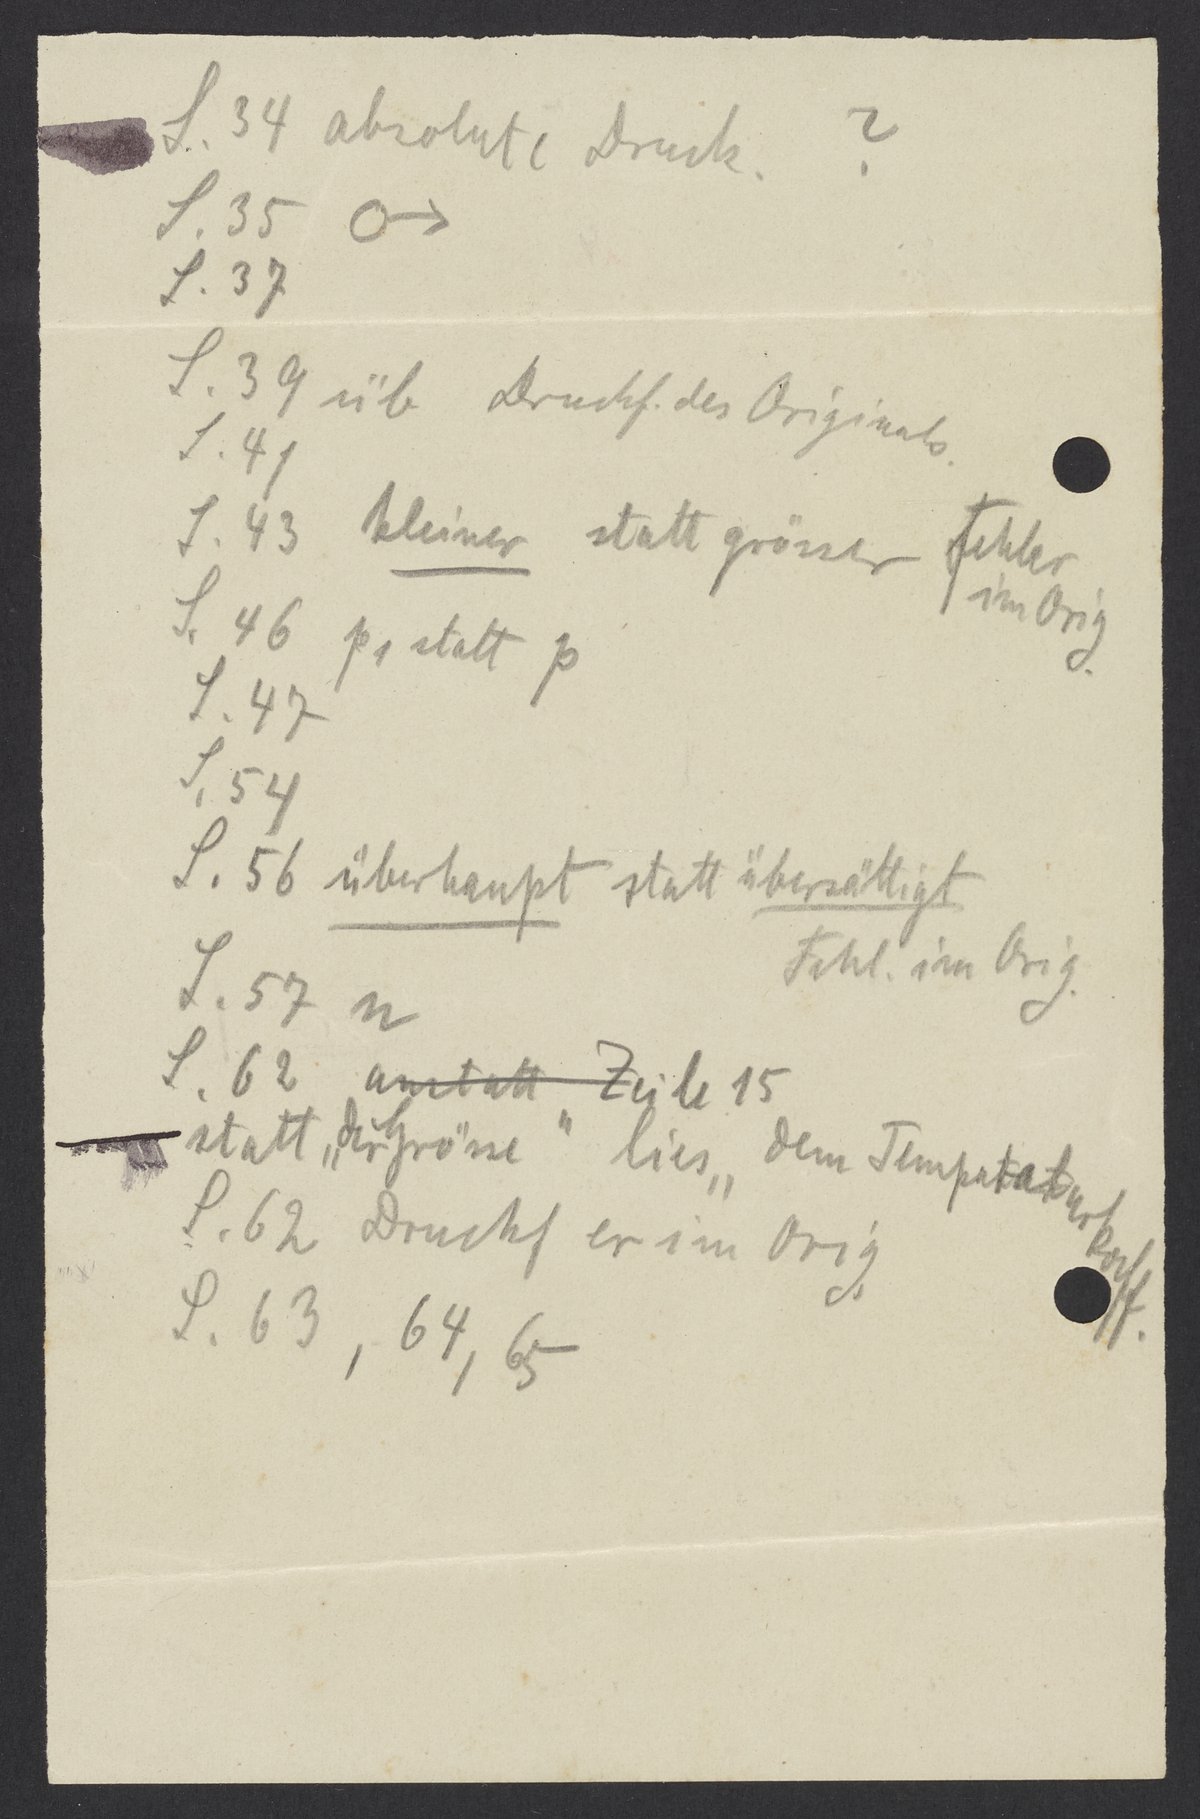 S. 34 absolute Druck. ?
S. 35 O→
S. 37
S. 39 üb Druckf. des Originals.
S. 41
S. 43 kleiner statt grösser Fehler
im Orig.
S. 46 p₁ statt p
S. 47
S. 54
S. 56 überhaupt statt übersättigt
Fehl. im Orig.
S. 57 n
S. 62 anstatt Zeile 15
statt „der Grösse" lies „dem Temperaturkoeff.
S. 62 Druckf er im Orig
S. 63, 64, 65